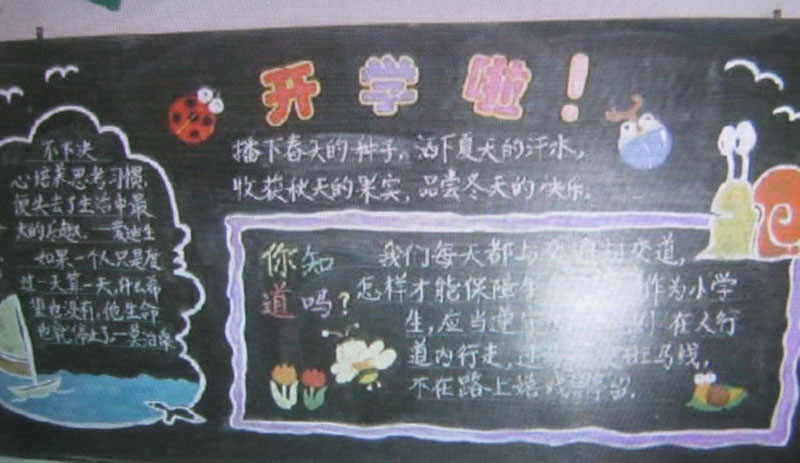 开学啦！
播下春天的种子，洒下夏天的汗水，
收获秋天的果实，品尝冬天的快乐。
不下决
心培养思考习惯，
便失去了生活中最
大的乐趣。—爱迪生
如果一个人只是度
过一天算一天，什么希
望也没有，他生命
也就停止了。—莫泊桑
你知
道吗？
我们每天都与交通打交道，
怎样才能保障生 作为小学
生，应当遵守 则 在人行
道内行走，过 斑马线，
不在路上嬉戏 停留。